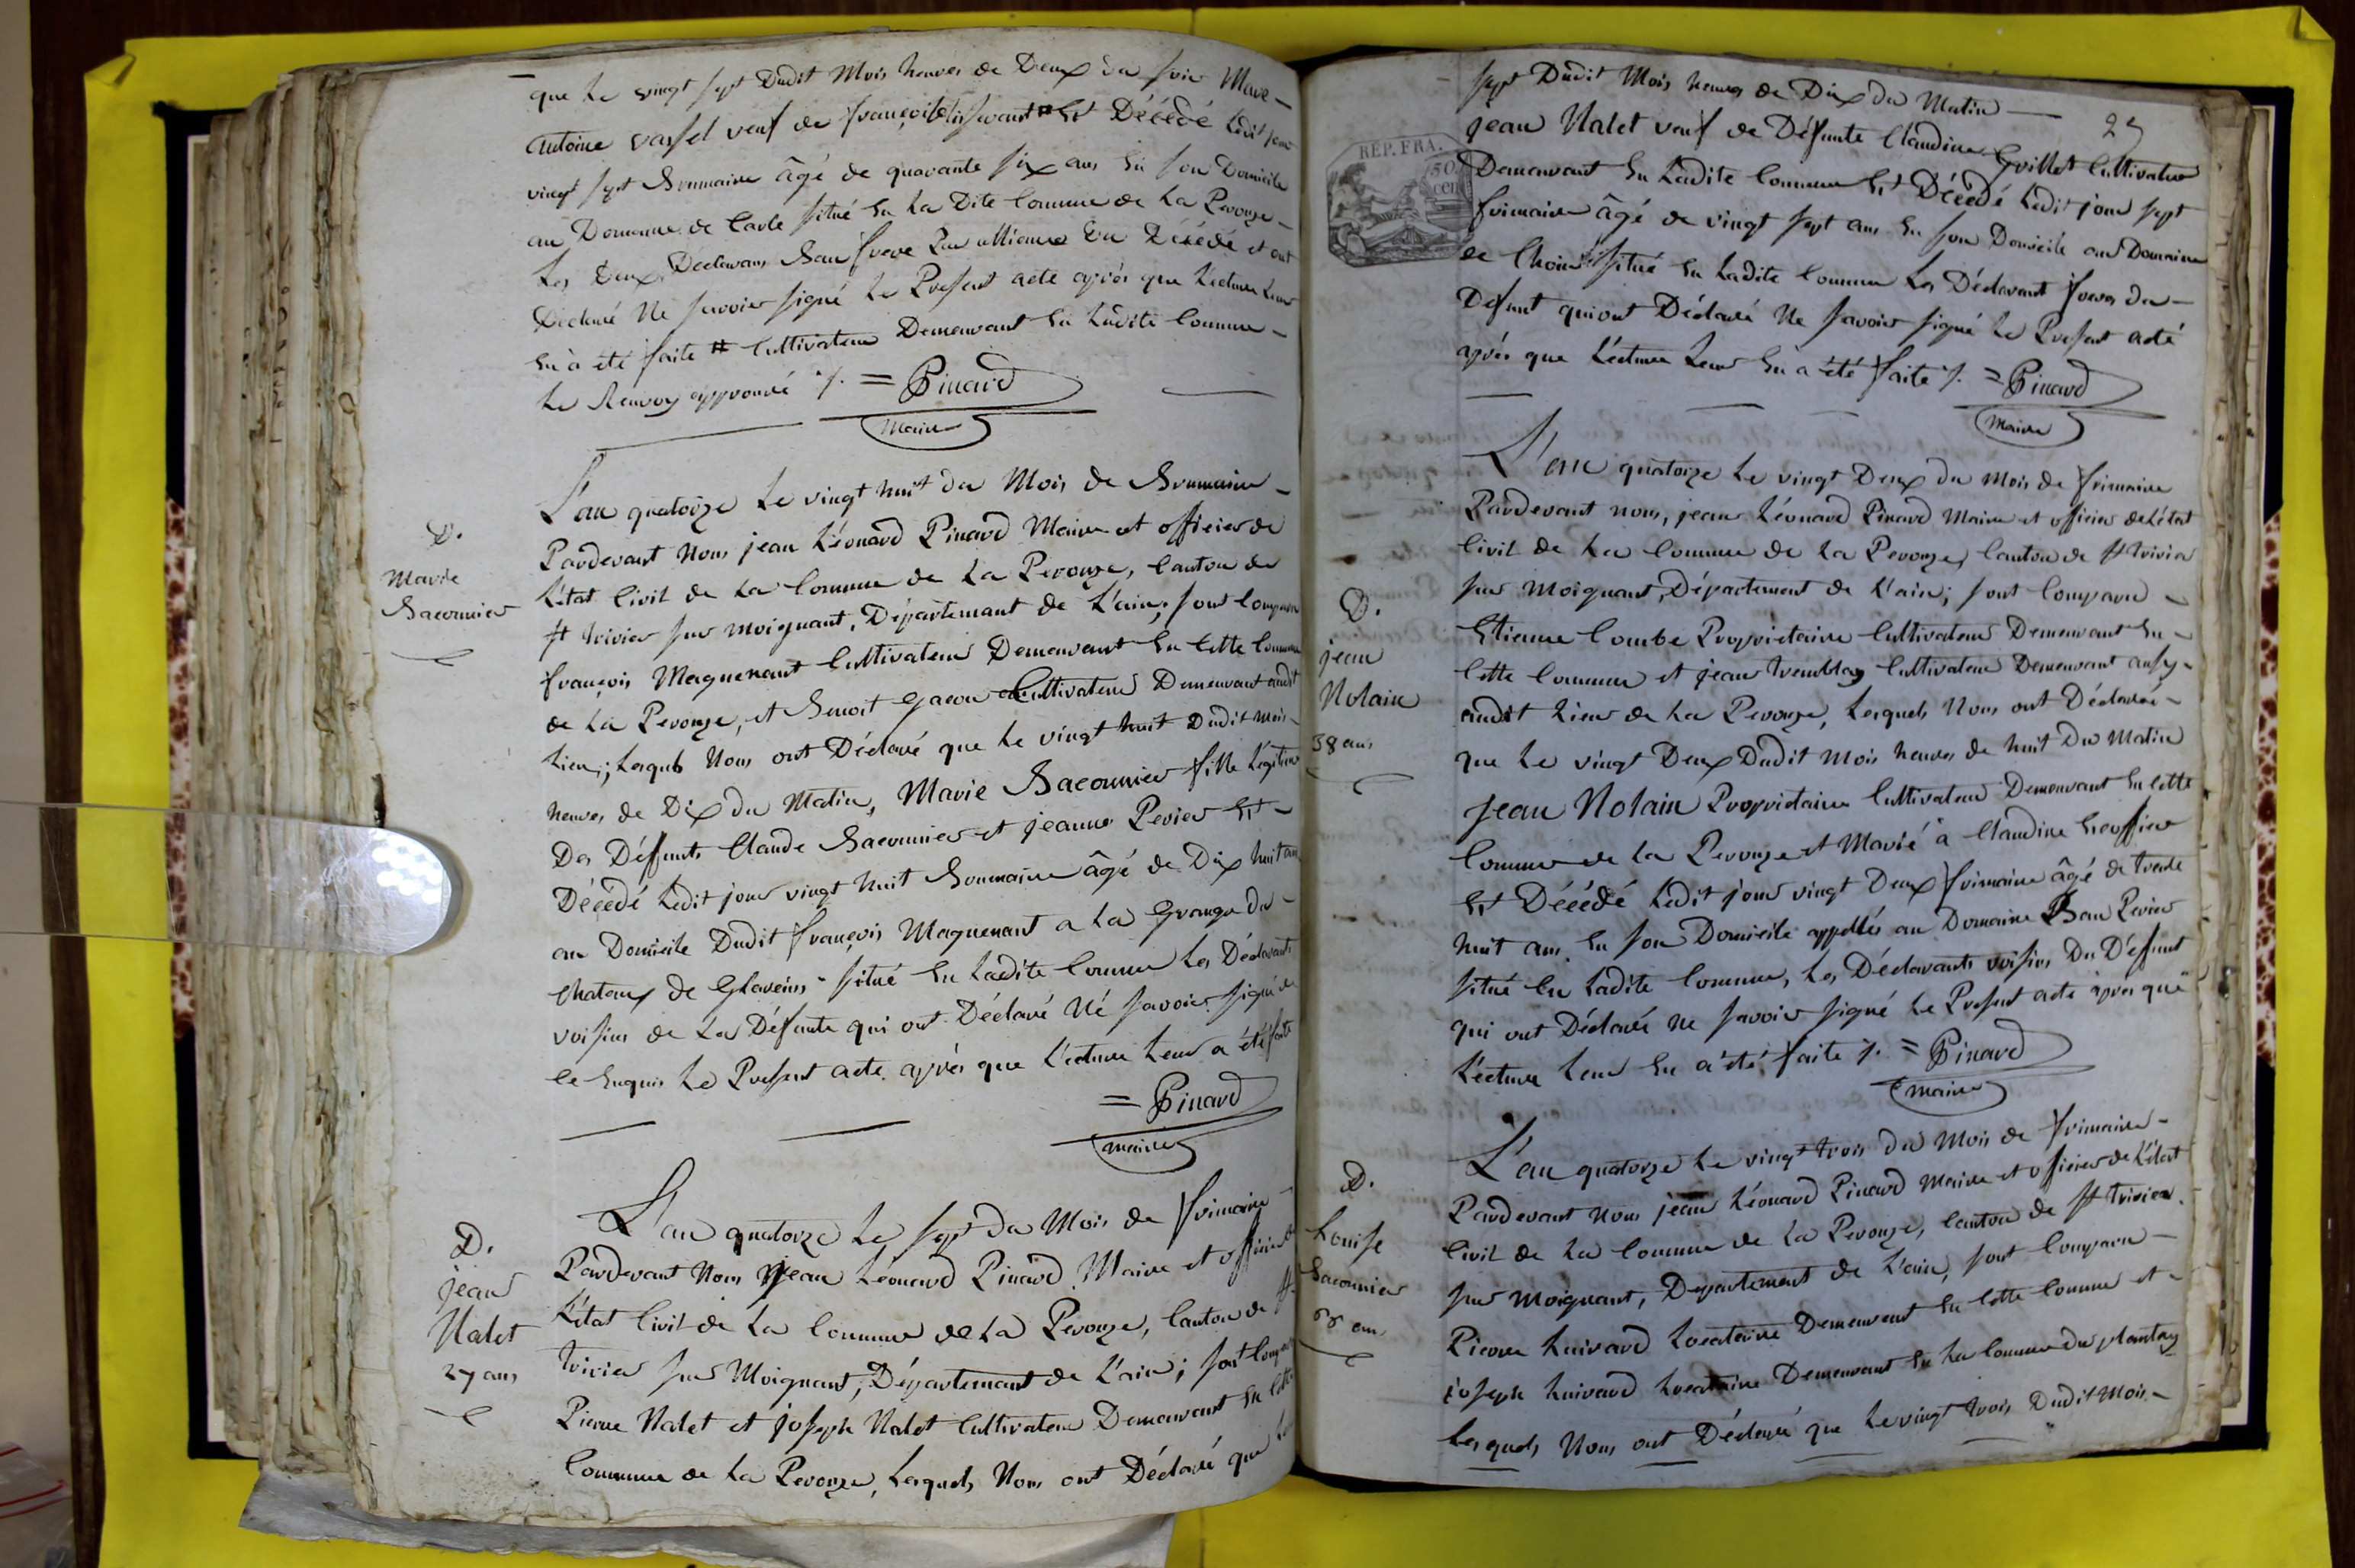 que Le vingt sept Dudit Mois heures de Deux du soir Marc
antoine vassel veuf de françoise Est Décédé Ledit jour
vingt sept Brumaire âgé de quarante six ans En son Domicile
au Domaine de situé En La Dite Commune de La Perouze
Les Deux Declarans Beau frere Par alliance Du Décédé et ont
Déclaré Ne savoir signé Le Présent acte après que Lecture Leur
En à été faite # Cultivateur Demeurant En Ladite Commune
Le Renvoy approuvé ./. = Pinard
Maire
D.
Marie
Baconnier
L'an quatorze Le vingt huit du Mois de Brumaire
Pardevant Nous jean Léonard Pinard Maire et officier de
L'état Civil de La Commune de La Perouze, Canton de
st trivier sur moignant, Département de L'ain; sont Comparu
françois Maguenant Cultivateur Demeurant En Cette Commune
de La Perouze, et Benoit gacon Cultivateur Demeurant audit
Lieu; Lesquels Nous ont Déclaré que Le vingt huit Dudit mois
heures de Dix du Matin, Marie Baconnier fille Légitime
Des Défunts Claude Baconnier et jeanne Perier Est
Décédé Ledit jour vingt huit Brumaire âgé de Dix huit ans
au Domicile Dudit françois Maguenant a La Grange du
chateaux de Glareins situé En Ladite Commune Les Déclarants
voisins de La Défunte qui ont Déclaré Né savoir signé de
ce Enquis Le Présent acte après que L'ecture Leur a été faite
= Pinard
maire
D.
jean
Nalet
27 ans
L'an quatorze Le sept du Mois de frimaire
Pardevant Nous jean Léonard Pinard Maire et officier de
L'état Civil de La Commune de La Perouze, Canton de st
trivier sur Moignant, Département de L'ain; sont Comparu
Pierre Nalet et joseph Nalet Cultivateur Demeurant En Cette
Commune de La Perouze, Lesquels Nous ont Déclaré que Le
REP. FRA.
50
cen
25
sept Dudit Mois heures de Dix du Matin
jean Nalet veuf de Défunte Claudine Grillet Cultivateur
Demeurant En Ladite Commune Est Décédé Ledit jour sept
frimaire âgé de vingt sept ans En son Domicile au Domaine
de situé En Ladite Commune Les Déclarant freres du
Défunt qui ont Déclaré Ne savoir signé Le Présent acté
après que L'ecture Leur En a été faite ./. = Pinard
Maire
D.
jean
Nolain
38 ans
L'an quatorze Le vingt Deux du Mois de frimaire
Pardevant nous, jean Léonard Pinard Maire et officier de L'état
Civil de La Commune de La Perouze, Canton de st trivier
sur Moignant, Département de L'ain; sont Comparu
Etienne Combe Proprietaire Cultivateur Demeurant En
Cette Commune et jean tremblay Cultivateur Demeurant aussy
audit Lieu de La Perouze, Lesquels Nous ont Déclarée
que Le vingt Deux Dudit Mois heures de huit Du Matin
jean Nolain Proprietaire Cultivateur Demeurant En Cette
Commune de La Perouze et Marié à Claudine
Est Décédé Ledit jour vingt Deux frimaire âgé de trente
huit ans En son Domicile appellés au Domaine Beau Perier
situé En Ladite Commune, Les Déclarants voisins Du Défunt
qui ont Déclaré ne savoir signé Le Présent acte après que
L'ecture Leur En a été faite ./. = Pinard
Maire
D.
Louise
Baconnier
68 ans
L'an quatorze Le vingt trois du Mois de frimaire
Pardevant Nous jean Léonard Pinard Maire et officier de L'état
Civil de La Commune de La Perouze, Canton de st trivier
sur Moignant, Departement de L'ain, sont Comparu
Pierre Luivard Locataire Demeurant En Cette Commune et
joseph Luivard Locataire Demeurant En La Commune du plantay
Lesquels Nous ont Déclaré que Le vingt trois Dudit Mois